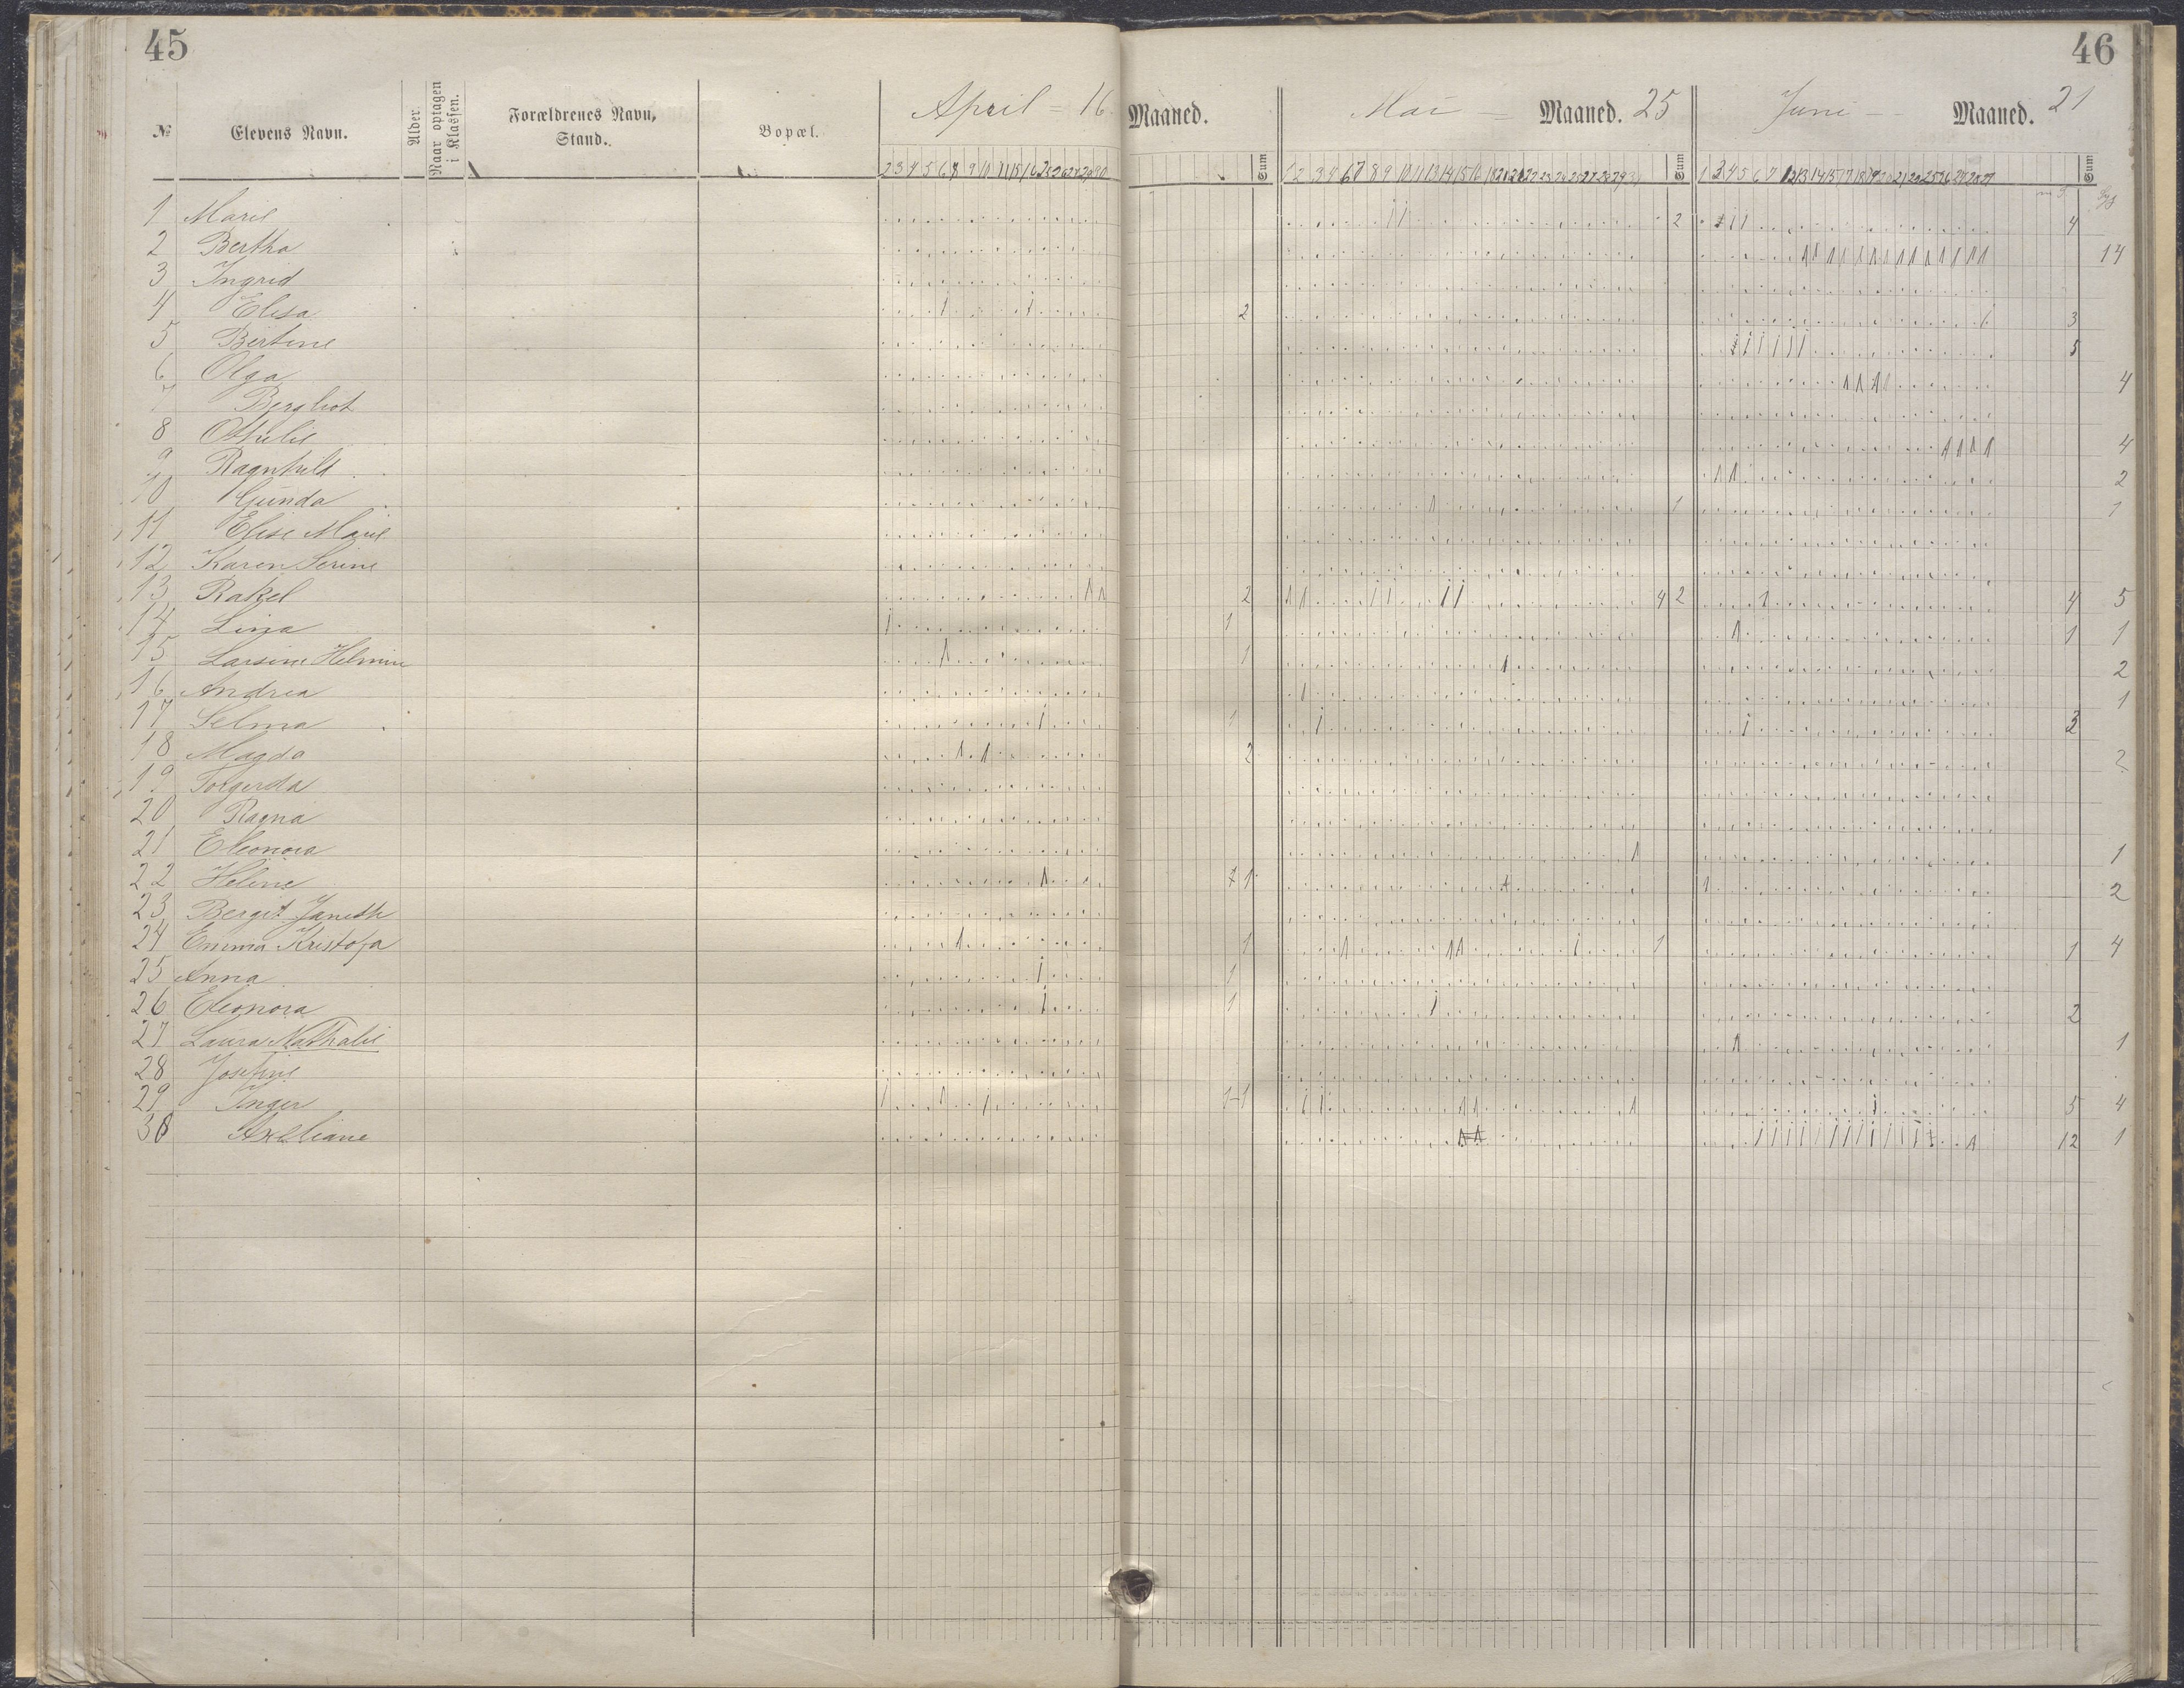 45
46
April = 16 Maaned.
Mai — Maaned. 25
Juni — Maaned. 21
№ Elevens Navn. Alder. Naar optagen i Klassen. Forældrenes Navn, Stand. Bopæl. Sum Sum Sum
m F. Syg
1 Marie 2 4
2 Bertha 14
3 Ingrid
4 Elisa 2 3
5 Birtine 5
6 Olga 4
7 Bergliot
8 Othilie 4
9 Ragnhild 2
10 Gunda 1 1
11 Elise Marie
12 Karen Serine
13 Rakel 2 4 2 4 5
14 Lina 1 1 1
15 Larsine Helmine 1 2
16 Andrea 1
17 Selma 1 3
18 Magda 2 2
19 Torgerda
20 Ragna
21 Eleonora 1
22 Heline 1 2
23 Bergit Janeth
24 Emma Kristofa 1 1 1 4
25 Anna 1
26 Eleonora 1 2
27 Laura Nathalie 1
28 Josefine
29 Inger 1-1 5 4
30 Axeliane 12 1